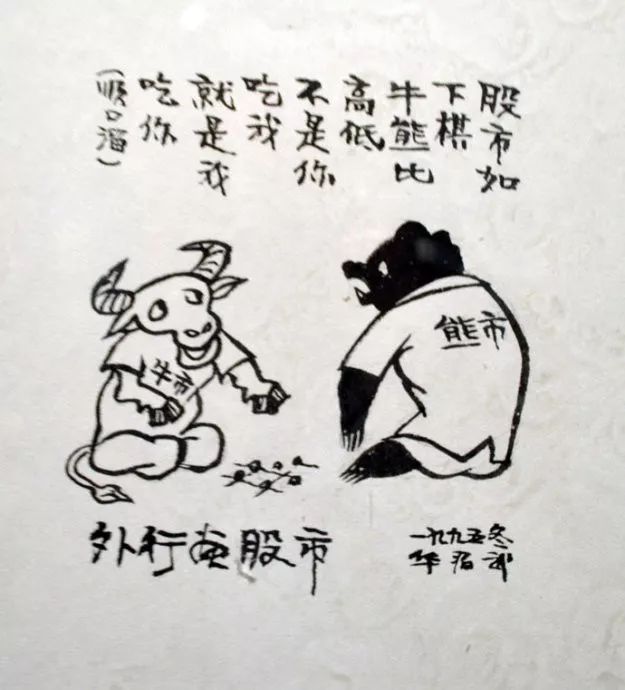 股市如
下棋
牛熊比
高低
不是你
吃我
就是我
吃你
（顺口溜）
牛市
熊市
外行画股市
一九九五冬
华君武